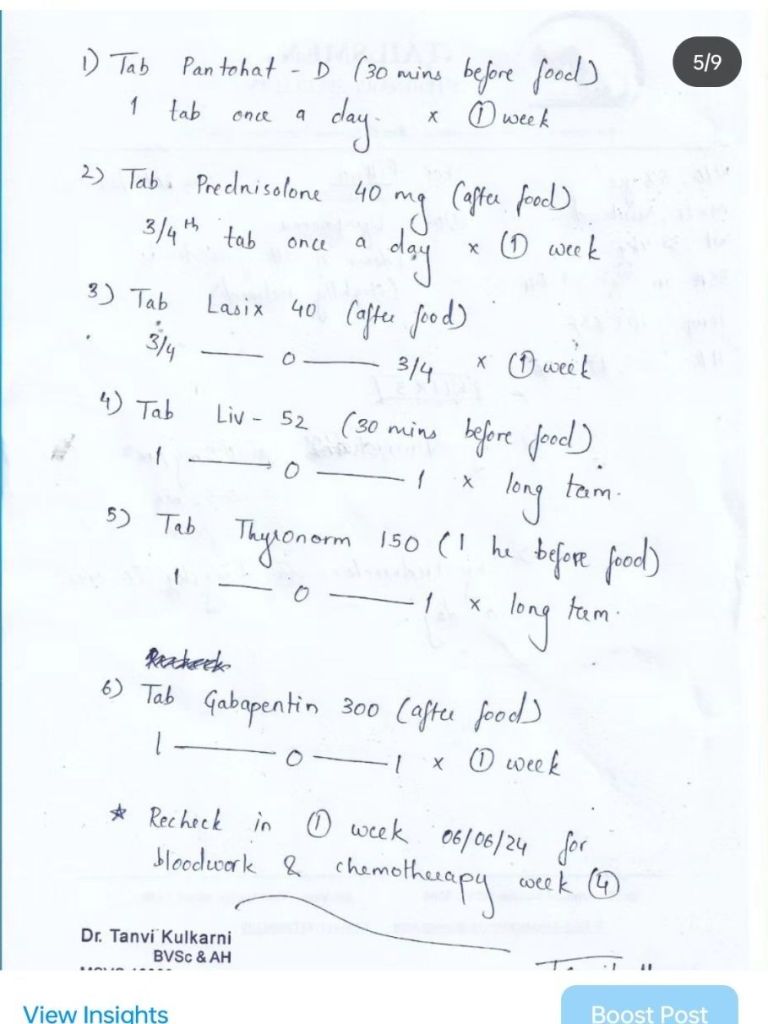 5/9
1) Tab Pantohat - D (30 mins before food)
1 tab once a day. x ① week
2) Tab Prednisolone 40 mg (after food)
3/4th tab once a day x ① week
3) Tab Lasix 40 (after food)
3/4 — 0 — 3/4 x ① week
4) Tab Liv - 52 (30 mins before food)
1 — 0 — 1 x long term.
5) Tab Thyronorm 150 (1 hr before food)
1 — 0 — 1 x long term.
6) Tab Gabapentin 300 (after food)
1 — 0 — 1 x ① week
* Recheck in ① week 06/06/24 for
bloodwork & chemotherapy week ④
Dr. Tanvi Kulkarni
BVSc & AH
View Insights
Boost Post